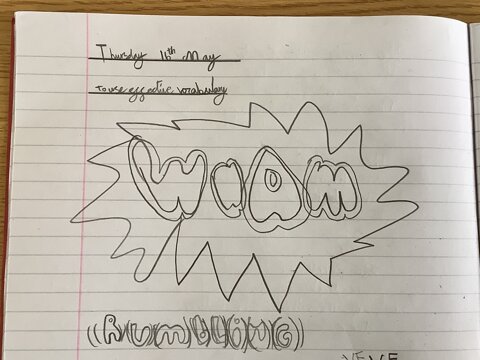 Thursday 16th May
to use effective vocabulary
WhAM
((RumbLiNG))